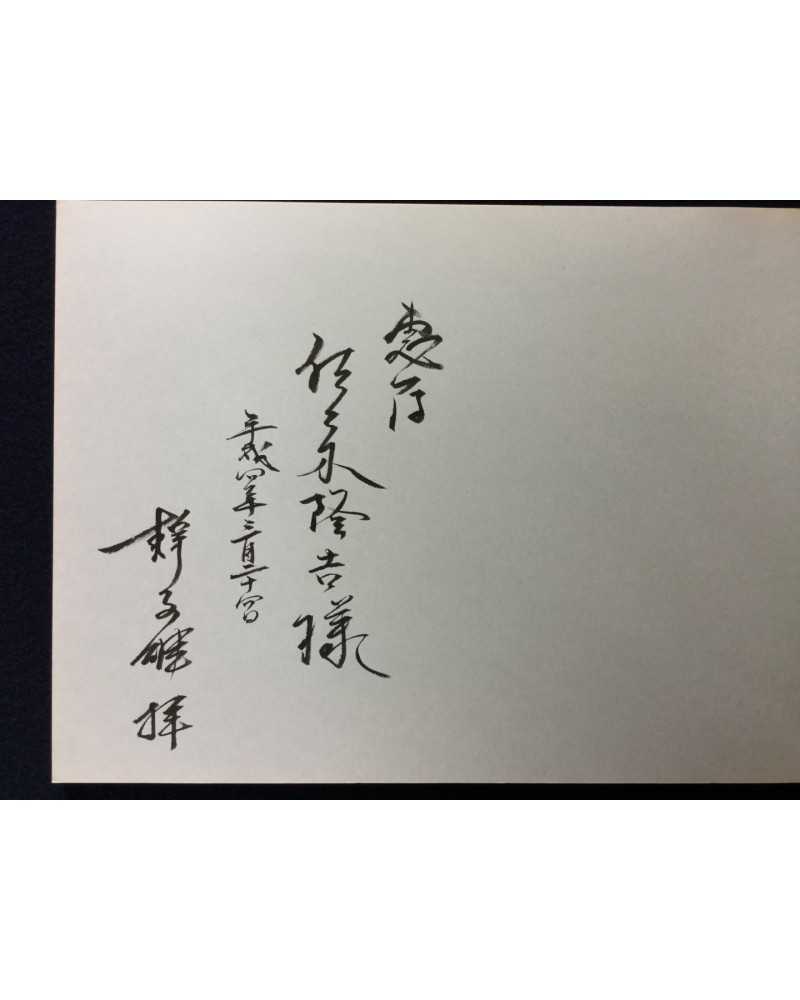 恵存
佐々木隆吉様
平成四年三月二十四日
拝